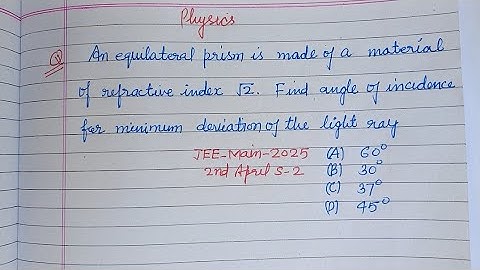 Physics
Q An equilateral prism is made of a material
of refractive index √2. Find angle of incidence
for minimum deviation of the light ray
JEE-Main-2025 (A) 60°
2nd April S-2 (B) 30°
(C) 37°
(D) 45°